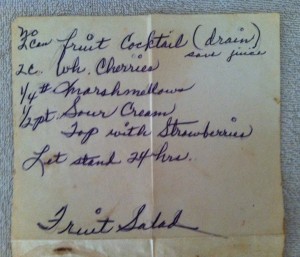 No 2 can fruit Cocktail (drain)
save juice
2c. wh. Cherries
1/4 # Marshmellows
1/2 pt Sour Cream
Top with Strawberries
Let stand 24 hrs.
Fruit Salad